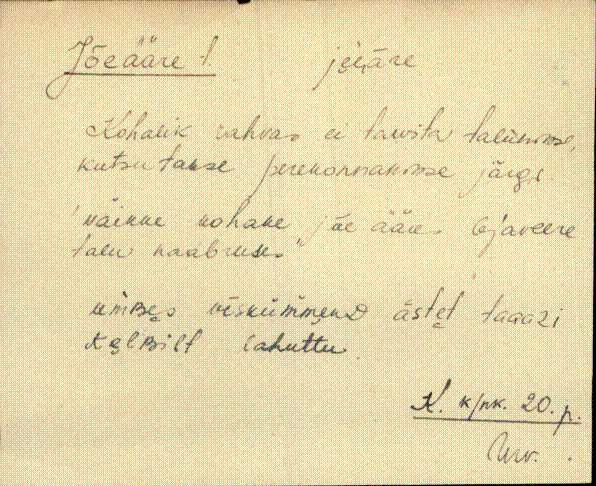 Jõeääre t. jeäre
Kohalik rahvas ei tarvita talunime,
kutsutakse perekonnanime järgi.
Väikene kohake jõe ääres Ojaveere
talu naabruses
umbes viskümmend āstet tagazi
lahuttu
K. k/nk. 20. p.
Urv.